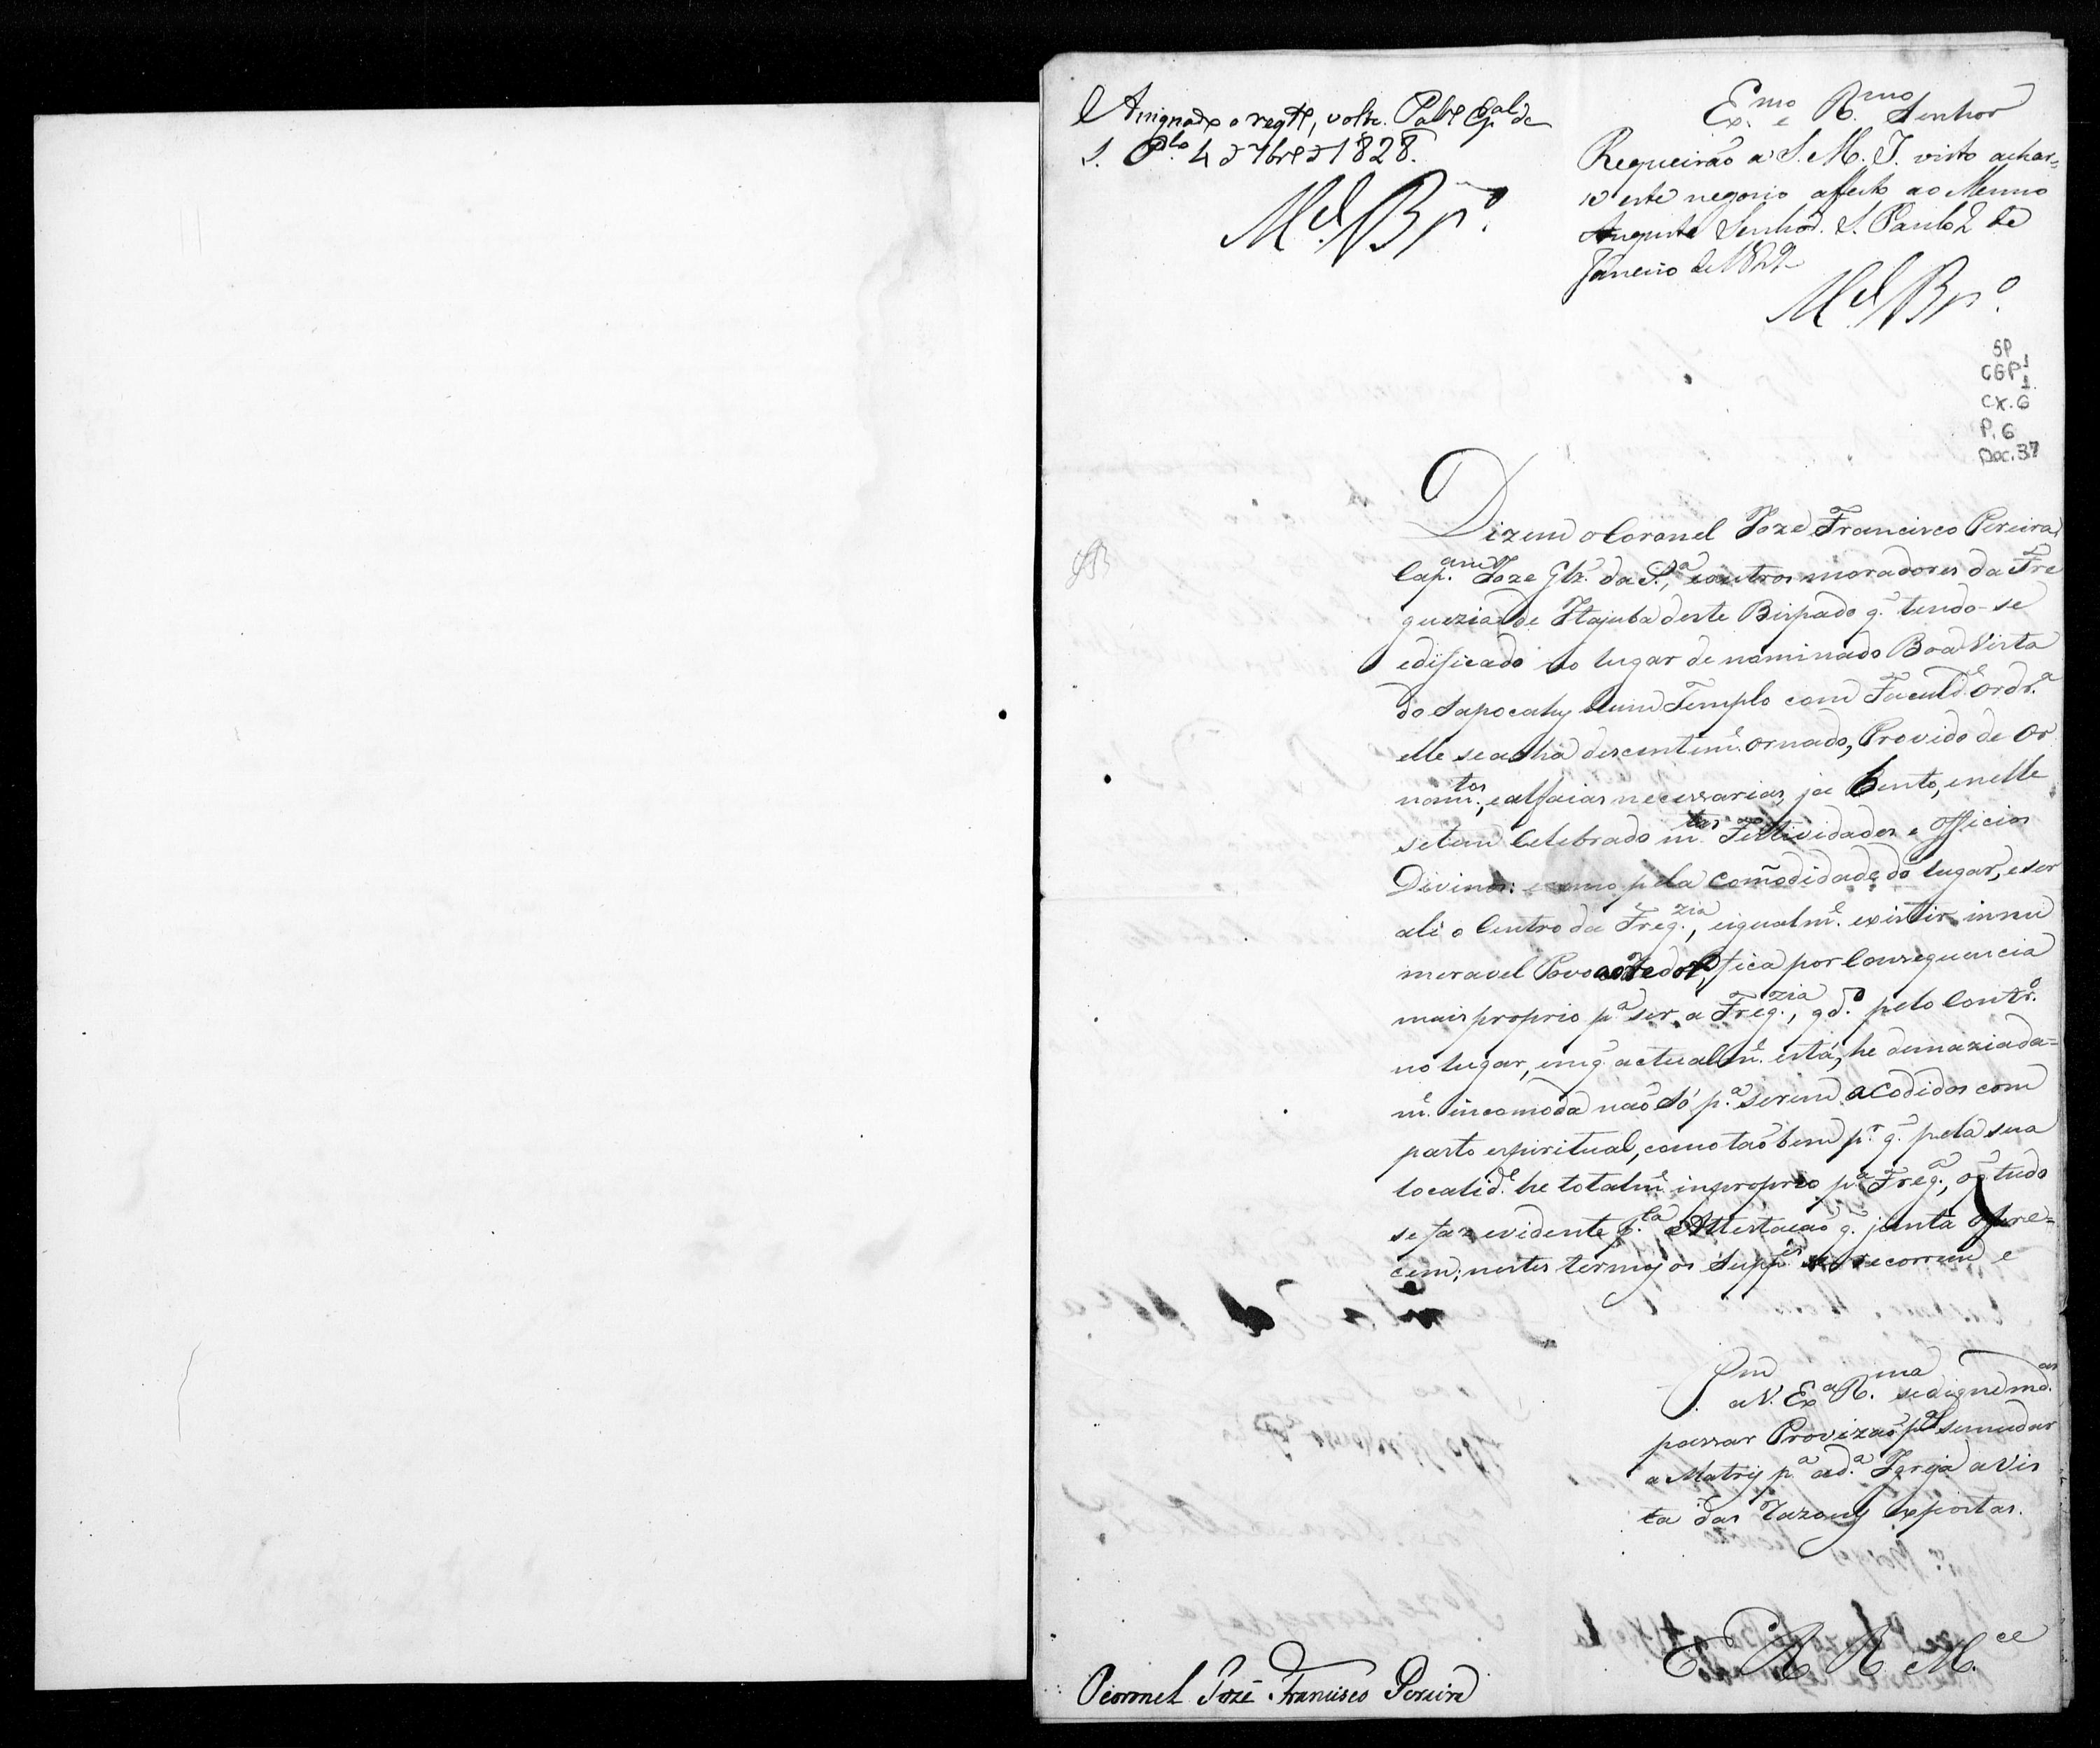 Assignado o reqte, volte. Palº Epal de
S. Plo 4 d 7bro d 1828.
Mel. Bpo.
Exmo e Rmo Senhor
Requeirão a S. M. I. visto achar-
se este negocio affecto ao Mesmo
Augusto Senhor. S. Paulo 2 de
Janeiro de 1829
Mel. Bpo.
SP
CGP1
1
CX. 6
P. 6
Doc. 37
Dizem o Coronel Joze Francisco Pereira,
Cap.am Joze Glz. da S.a, e outros moradores da Fre
guezia de Itajuba deste Bispado q. tendo-se
edificado no lugar denominado Boa Vista
do Sapocahy hum Templo com Faculde. Ordr.a
elle se acha descentime. ornado, Provido de Or
nam.tos, e alfaias necessarias, ja Bento, e nelle
se tem Celebrado m.tas Festividades e Officios
Divinos: e como pela comodidade do lugar, e ser
ali o Centro da Freg.zia, e igualm.e existir innu
meravel Povo ao redor, fica por Consequencia
mais proprio p.a ser a Freg.zia, qd.o pelo Contr.o
no lugar, em q. actualm.e está, he demaziada=
m.e incomoda não só p.a serem acodidos com
pasto espiritual, como tão bem p.r q. pela sua
localid.e he totalm.e inproprio p.a Freg.a, o q. tudo
se faz evidente p.la Attestacão q. junta offere=
cem; nestes termos os Supp.es recorrem e
P. a V. Ex.a R.ma se digne md.ar
passar Provizão p.a se mudar
a Matriz p.a a d.a Igreja a vis
ta das Razoens expostas.
E. R. M.ce
O coronel José Francisco Pereira